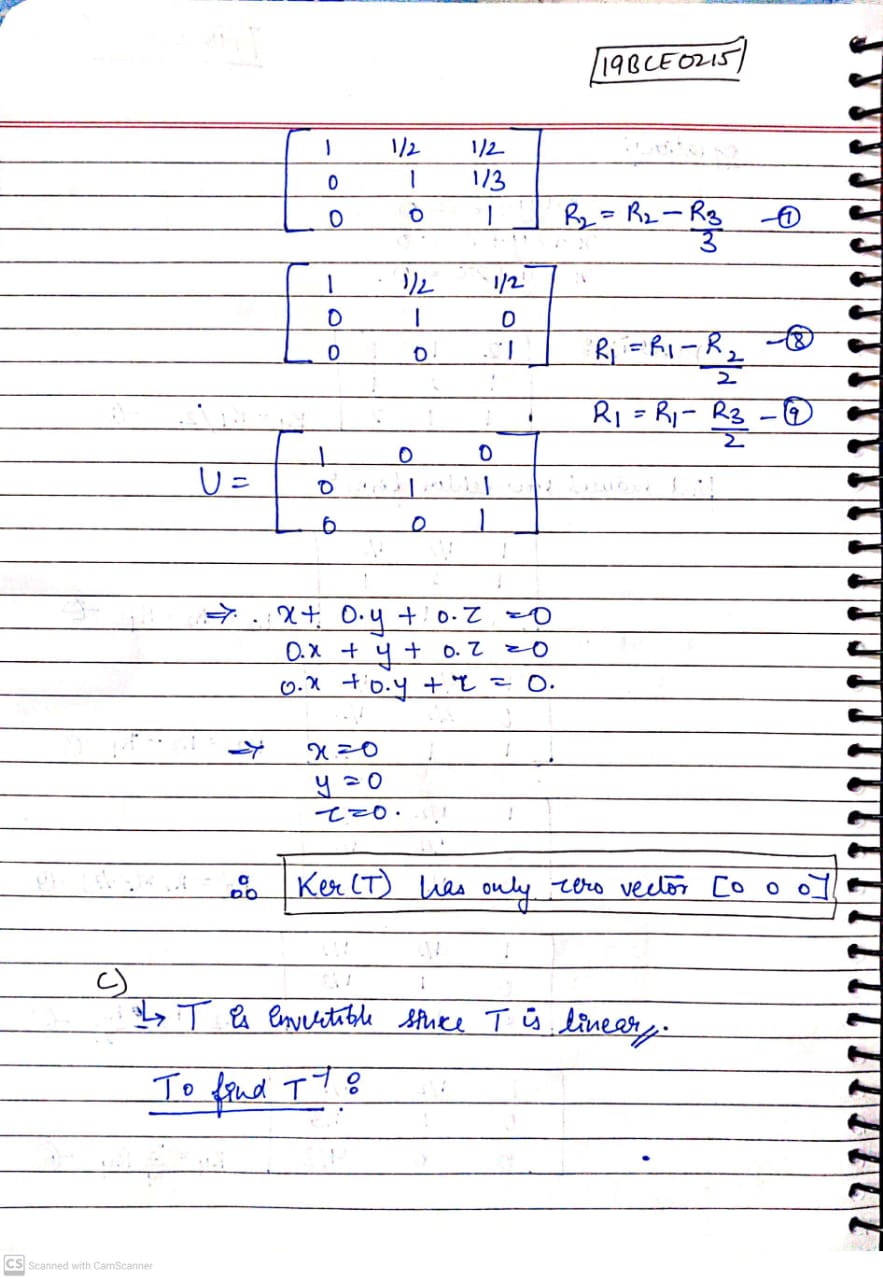 19BCE0215
1 1/2 1/2
0 1 1/3
0 0 1 R₂ = R₂ - R₃/3 -⑦
1 1/2 1/2
0 1 0
0 0 1 R₁ = R₁ - R₂/2 -⑧
R₁ = R₁ - R₃/2 -⑨
U = 1 0 0
0 1 1
0 0 1
⇒ x + 0.y + 0.z = 0
0.x + y + 0.z = 0
0.x + 0.y + z = 0.
⇒ x = 0
y = 0
z = 0.
∴ Ker (T) has only zero vector [0 0 0]
c)
↳ T is invertible since T is linear.
To find T⁻¹ :
CS Scanned with CamScanner